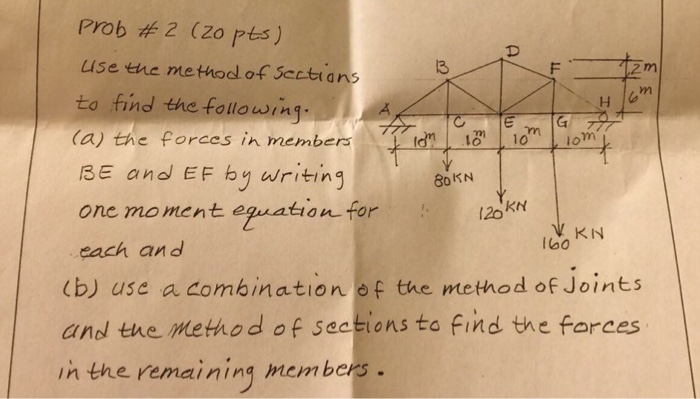 Prob # 2 (20 pts)
Use the method of Sections
to find the following.
(a) the forces in members
BE and EF by writing
one moment equation for
each and
(b) use a combination of the method of joints
and the method of sections to find the forces
in the remaining members.
D
B
F
2m
6m
A
H
C
E
G
10m
10m
10m
10m
80KN
120KN
160 KN